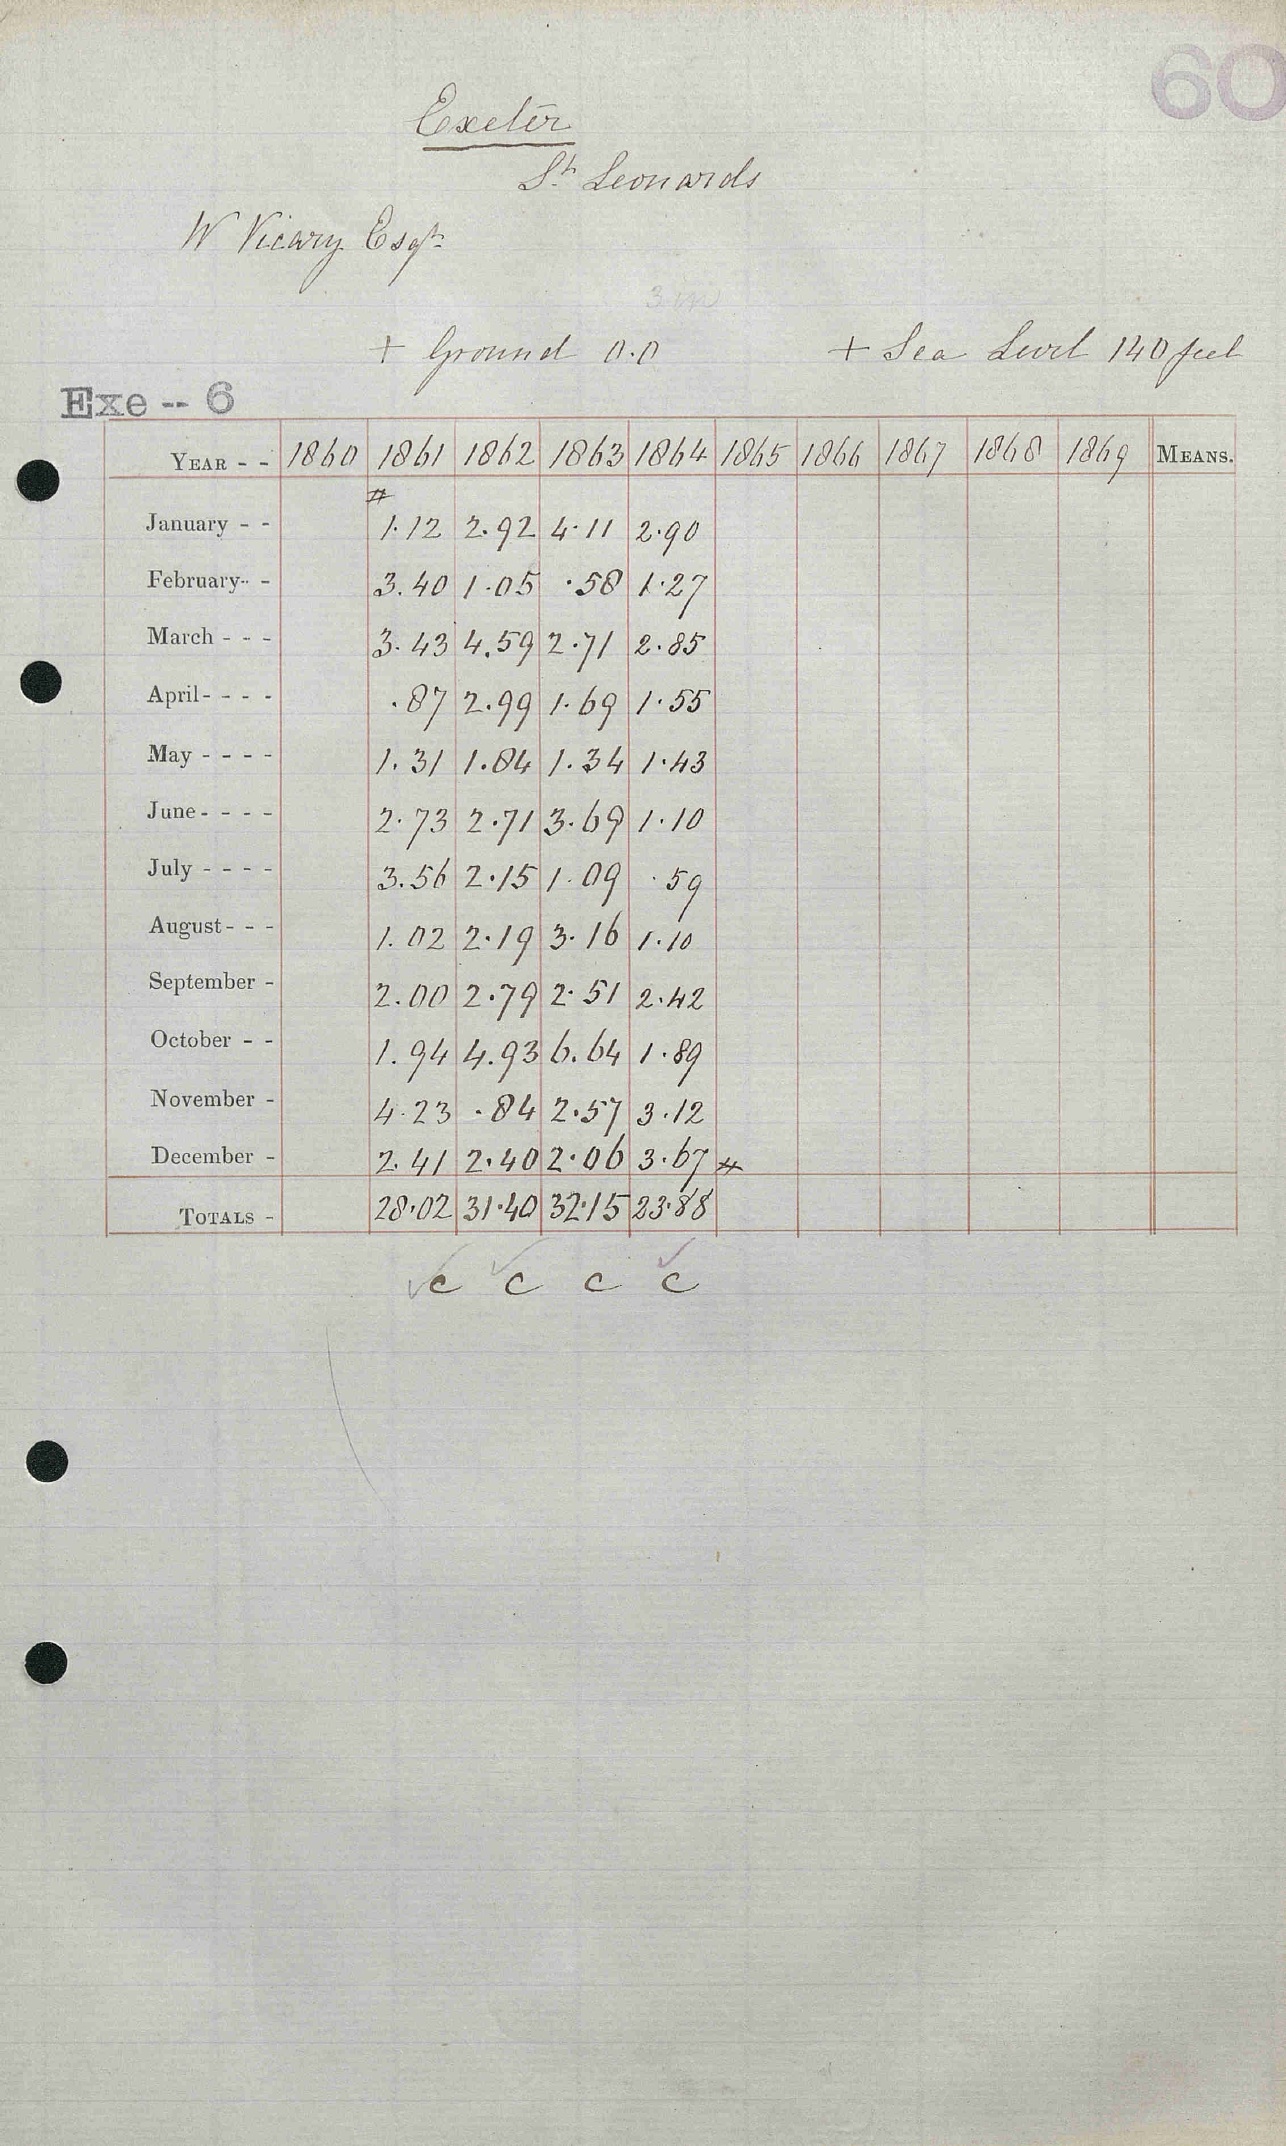 60
Exeter
St. Leonards
W Vicary Esqr.
3 in
+ Ground 0.0 + Sea Level 140 feet
Exe -- 6
YEAR - - 1860 1861 1862 1863 1864 1865 1866 1867 1868 1869 MEANS.
#
January - - 1.12 2.92 4.11 2.90
February - - 3.40 1.05 .58 1.27
March - - - 3.43 4.59 2.71 2.85
April - - - - .87 2.99 1.69 1.55
May - - - - 1.31 1.84 1.34 1.43
June - - - - 2.73 2.71 3.69 1.10
July - - - - 3.56 2.15 1.09 .59
August - - - 1.02 2.19 3.16 1.10
September - 2.00 2.79 2.51 2.42
October - - 1.94 4.93 6.64 1.89
November - 4.23 .84 2.57 3.12
December - 2.41 2.40 2.06 3.67 #
TOTALS - 28.02 31.40 32.15 23.88
c c c c